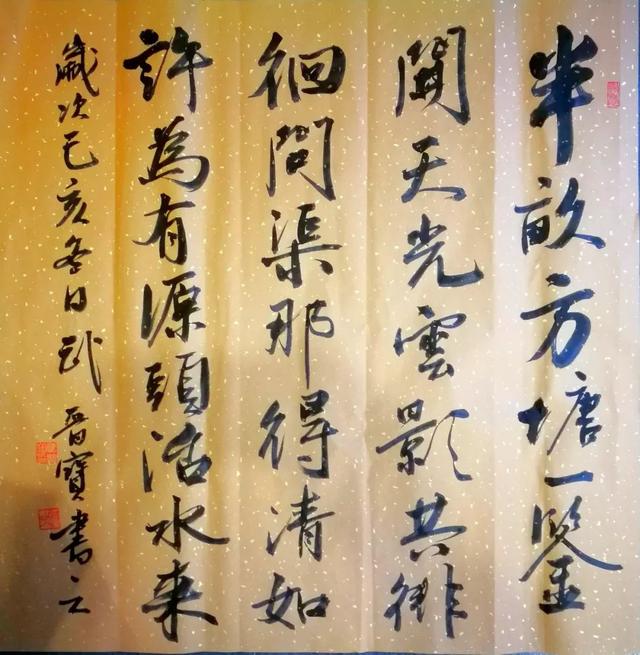 半畝方塘一鑒
開天光雲影共徘
徊問渠那得清如
許為有源頭活水来
歲次己亥冬日武晋寶書之